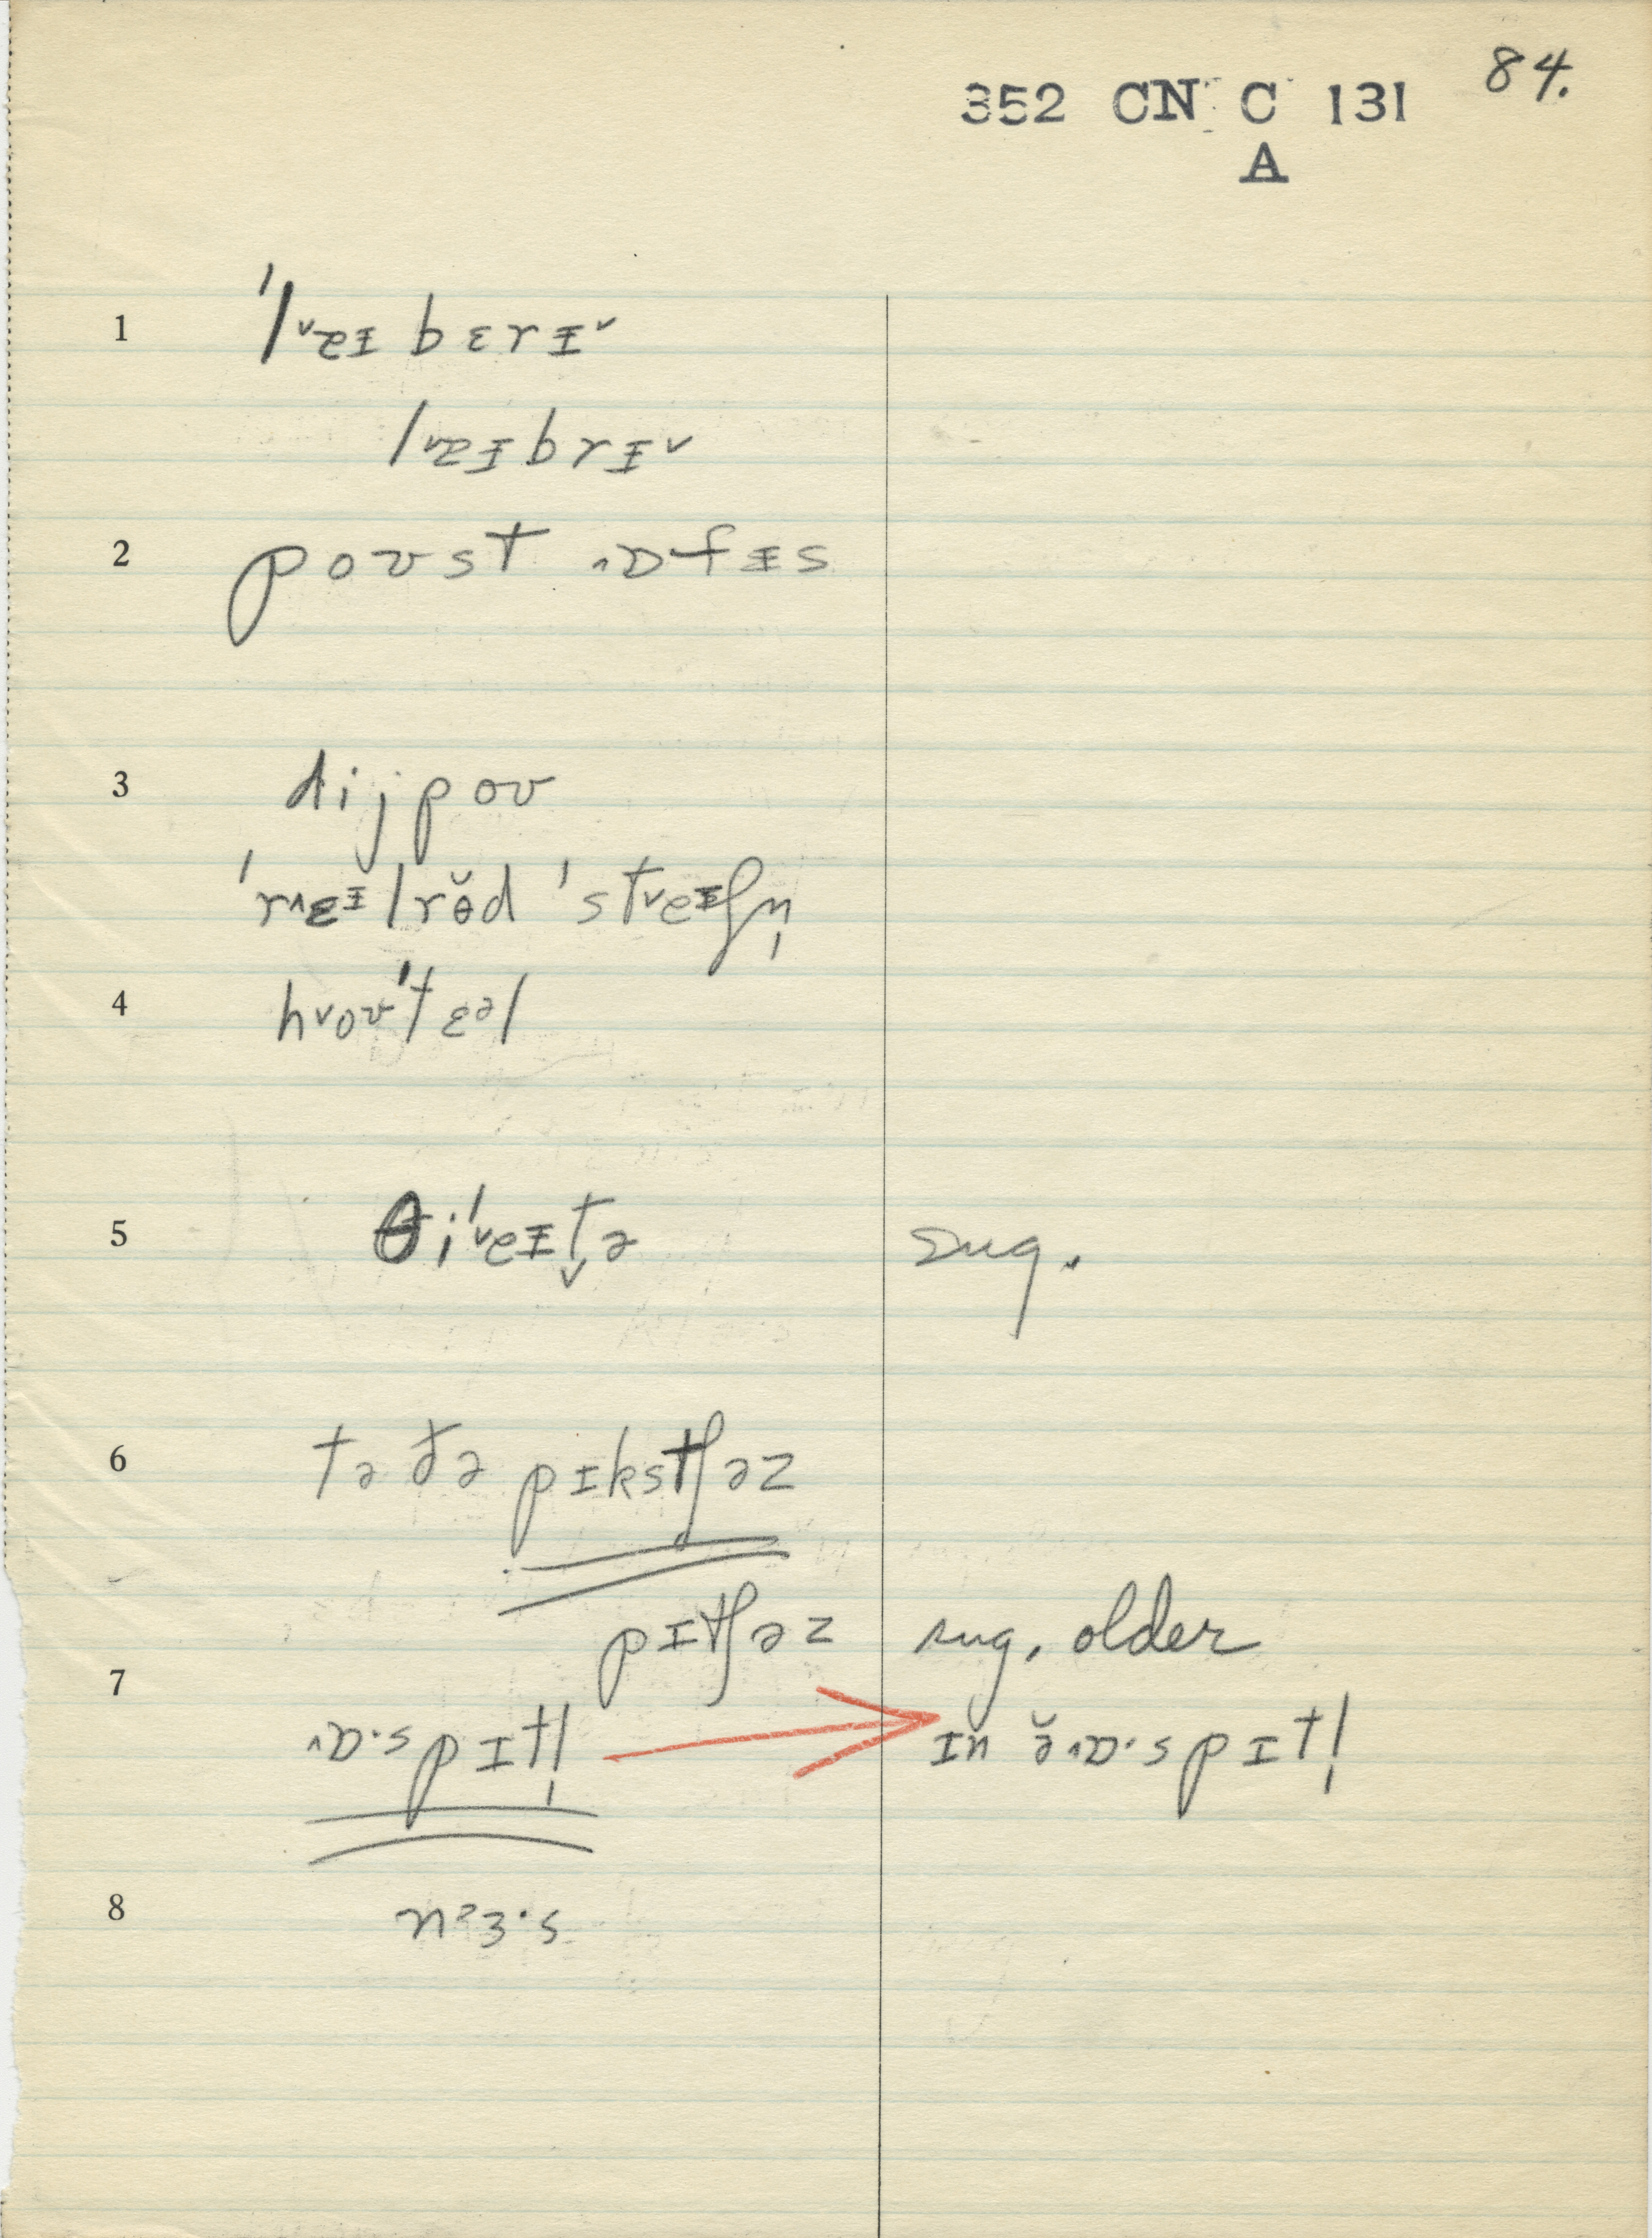 84.
352 CN C 131
A
1 ˈl˅æɪbɛrɪ˅
l˅æɪbrɪ˅
2 poʊst ˄ɒfɪs
3 dijpoʊ
ˈr˄ɛɪlrɵ̆d ˈst˅eɪʃn̩
4 h˅oʊˈtɛəl
5 θiˈ˅eɪt̬ə sug.
6 tə ðə pɪkstʃəz
pɪtʃəz sug. older
7 ˄ɒ·spɪtl̩ → ɪn ə̆˄ɒ·spɪtl̩
8 nᵊɜ·s